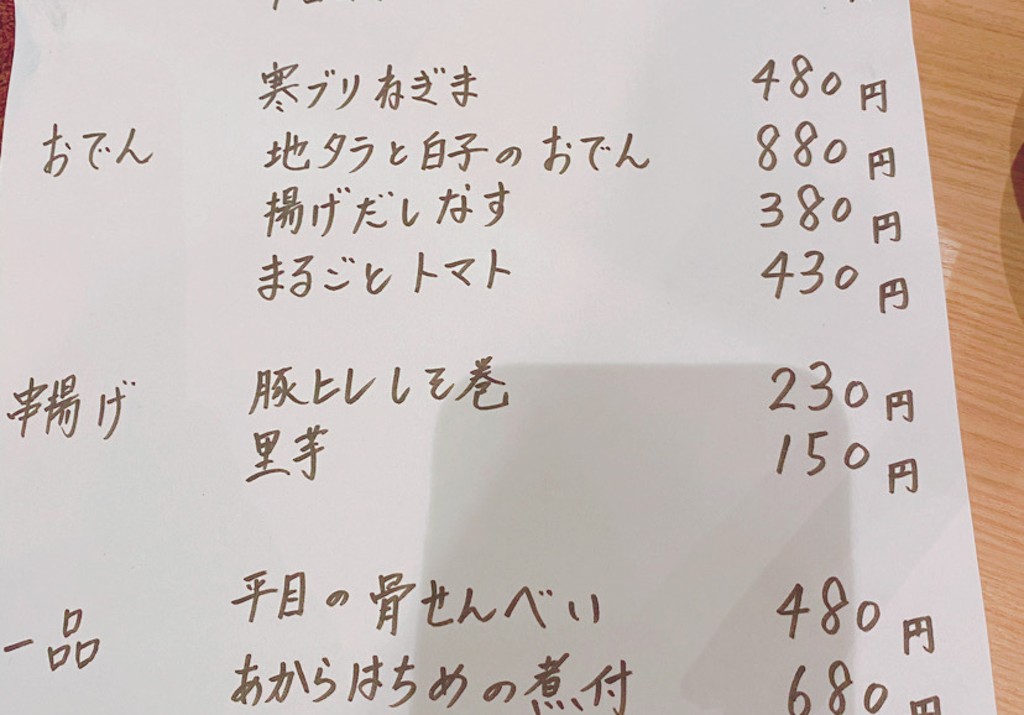 寒ブリねぎま 480円
おでん 地タラと白子のおでん 880円
揚げだしなす 380円
まるごとトマト 430円
串揚げ 豚ヒレしそ巻 230円
里芋 150円
一品 平目の骨せんべい 480円
あからはちめの煮付 680円